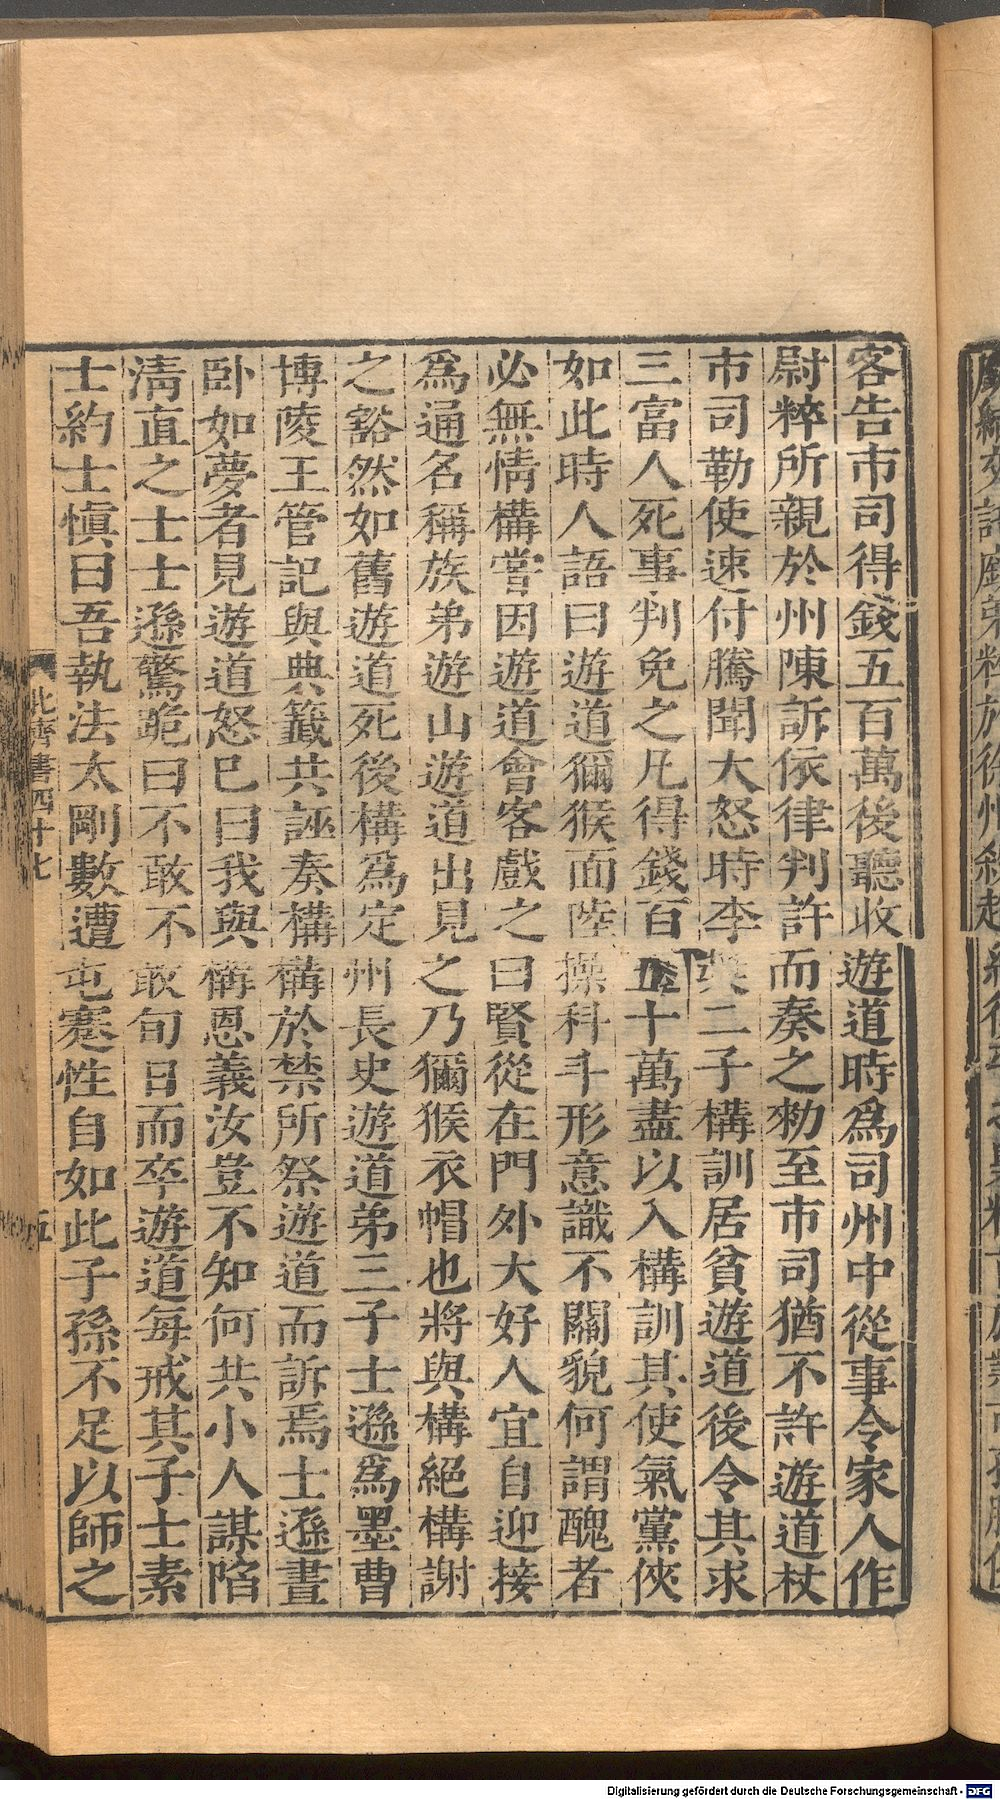 客告市司得錢五百萬後聽收遊道時爲司州中從事令家人作
尉粹所親於州陳訴依律判許而奏之勑至市司猶不許遊道杖
市司勒使速付騰聞大怒時李奬二子構訓居貧遊道後令其求
三富人死事判免之凡得錢百五十萬盡以入構訓其使氣黨俠
如此時人語曰遊道獼猴面陸操科斗形意識不關貌何謂醜者
必無情構嘗因遊道會客戲之曰賢從在門外大好人宜自迎接
爲通名稱族弟遊山遊道出見之乃獼猴衣帽也將與構絕構謝
之豁然如舊遊道死後構爲定州長史遊道弟三子士遜爲墨曹
博陵王管記與典籖共誣奏構構於禁所祭遊道而訴焉士遜晝
卧如夢者見遊道怒巳曰我與構恩義汝豈不知何共小人謀陷
淸直之士士遜驚跪曰不敢不敢旬日而卒遊道每戒其子士素
士約士愼曰吾執法太剛數遭屯蹇性自如此子孫不足以師之
北齊書四十七 五
Digitalisierung gefördert durch die Deutsche Forschungsgemeinschaft - DFG